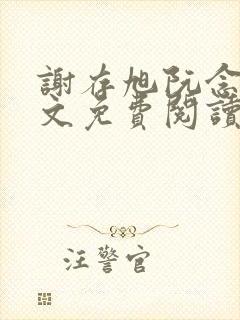 謝存旭阮念
文免費閱讀
汪警官